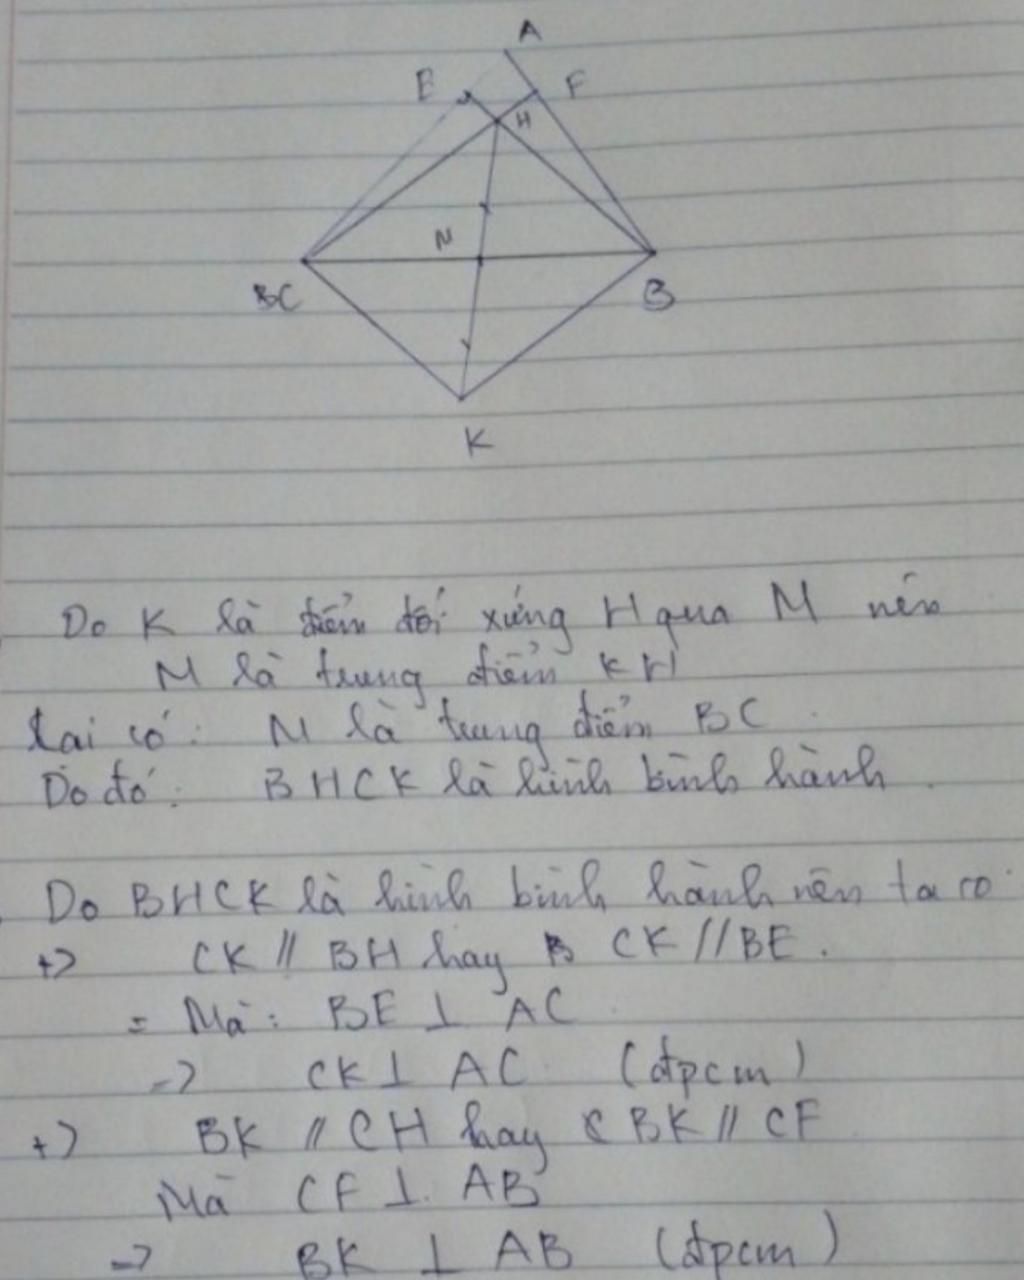 A
E F
H
N
BC B
K
Do K là điểm đối xứng H qua M nên
M là trung điểm KH
Lại có: M là trung điểm BC.
Do đó: BHCK là hình bình hành.
Do BHCK là hình bình hành nên ta có
+> CK // BH hay B CK // BE.
= Mà: BE ⊥ AC.
-> CK ⊥ AC (đpcm)
+> BK // CH hay C BK // CF
Mà CF ⊥. AB
-> BK ⊥ AB (đpcm)